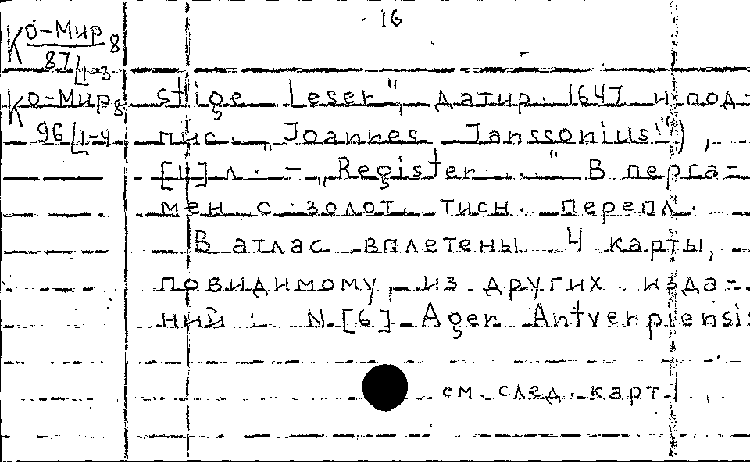 16
Ко-Мир 8
87/1-3
Ко-Мир 8
96/1-4
stige Leser", датир. 1647 и под-
пис. „Joannes Janssonius"),
[1] л. - „Register..." В перга-
мен с золот. тисн. перепл.
В атлас вплетены 4 карты,
повидимому, из других изда-
ний: N [6] Ager Antverpiensis
см. след. карт.